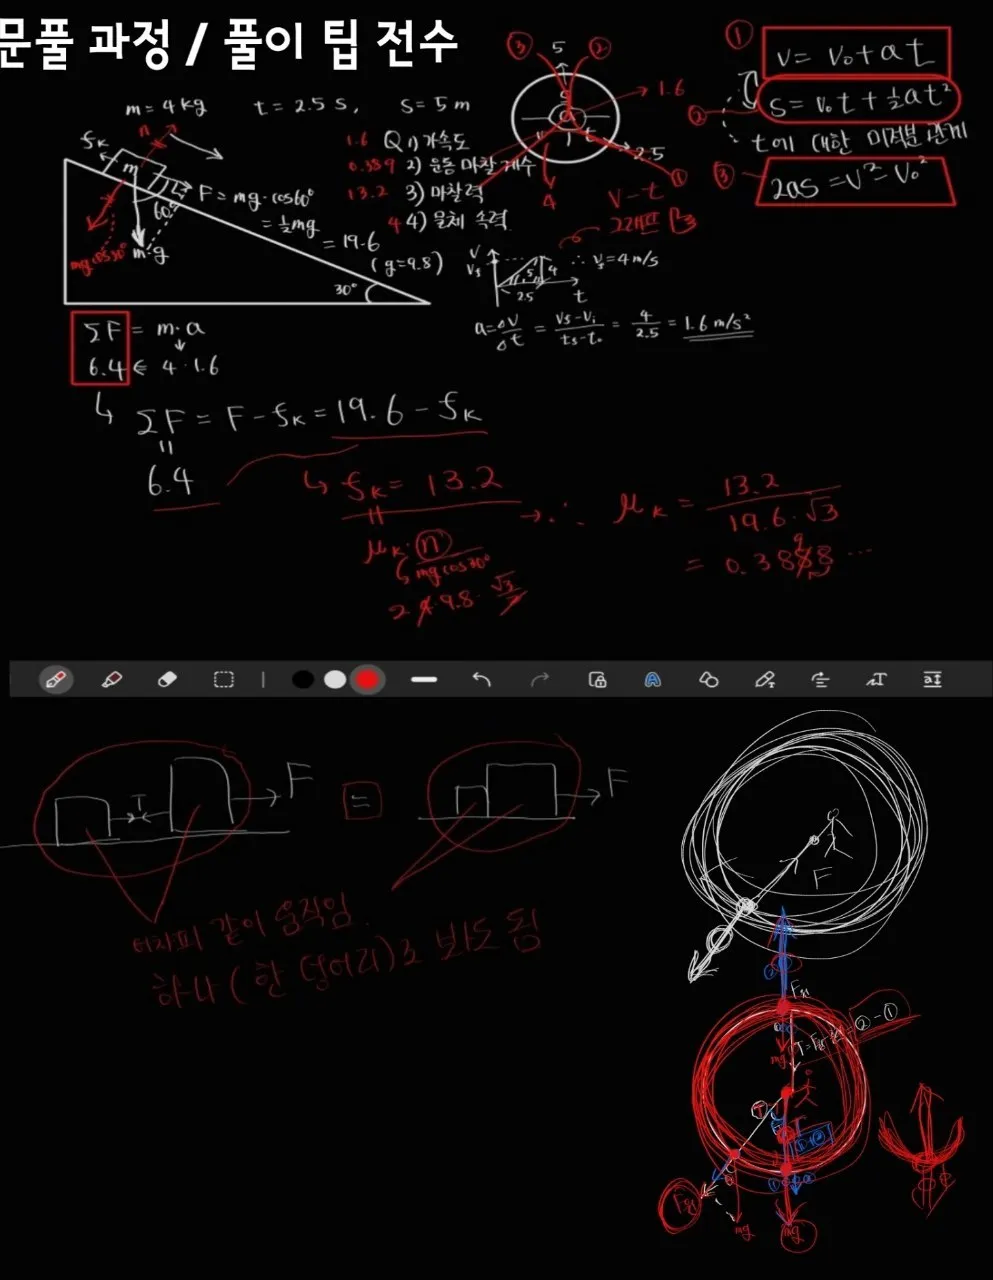 문풀 과정 / 풀이 팁 전수
m = 4 kg   t = 2.5 s,   s = 5 m
1.6 Q 1) 가속도
0.389 2) 운동 마찰 계수
13.2 3) 마찰력
4 4) 물체 속력
③ 5 ②
1.6
2.5
①
4
v-t
그래프
① v = v₀ + at
② s = v₀t + ½at²
t에 대한 미적분 관계
③ 2as = v² - v₀²
fₖ
n
m
F = mg·cos60°
= ½mg
= 19.6
(g=9.8)
60°
mg cos30°
m·g
30°
v
v_f
5
4
2.5
t
∴ v_f = 4 m/s
a = Δv/Δt = (v_f - v_i)/(t_f - t₀) = 4/2.5 = 1.6 m/s²
ΣF = m·a
6.4 ⇐ 4·1.6
↳ ΣF = F - fₖ = 19.6 - fₖ
=
6.4
↳ fₖ = 13.2
=
μₖ·n
mg cos30°
2 4·9.8·√3/2
→ ∴ μₖ = 13.2/(19.6·√3)
= 0.3888 ···
9
T
F
=
F
어차피 같이 움직임.
하나 (한 덩어리)로 봐도 됨
F
②
F원
mg
② - ①
T
T
① + ②
①
F원
mg
mg